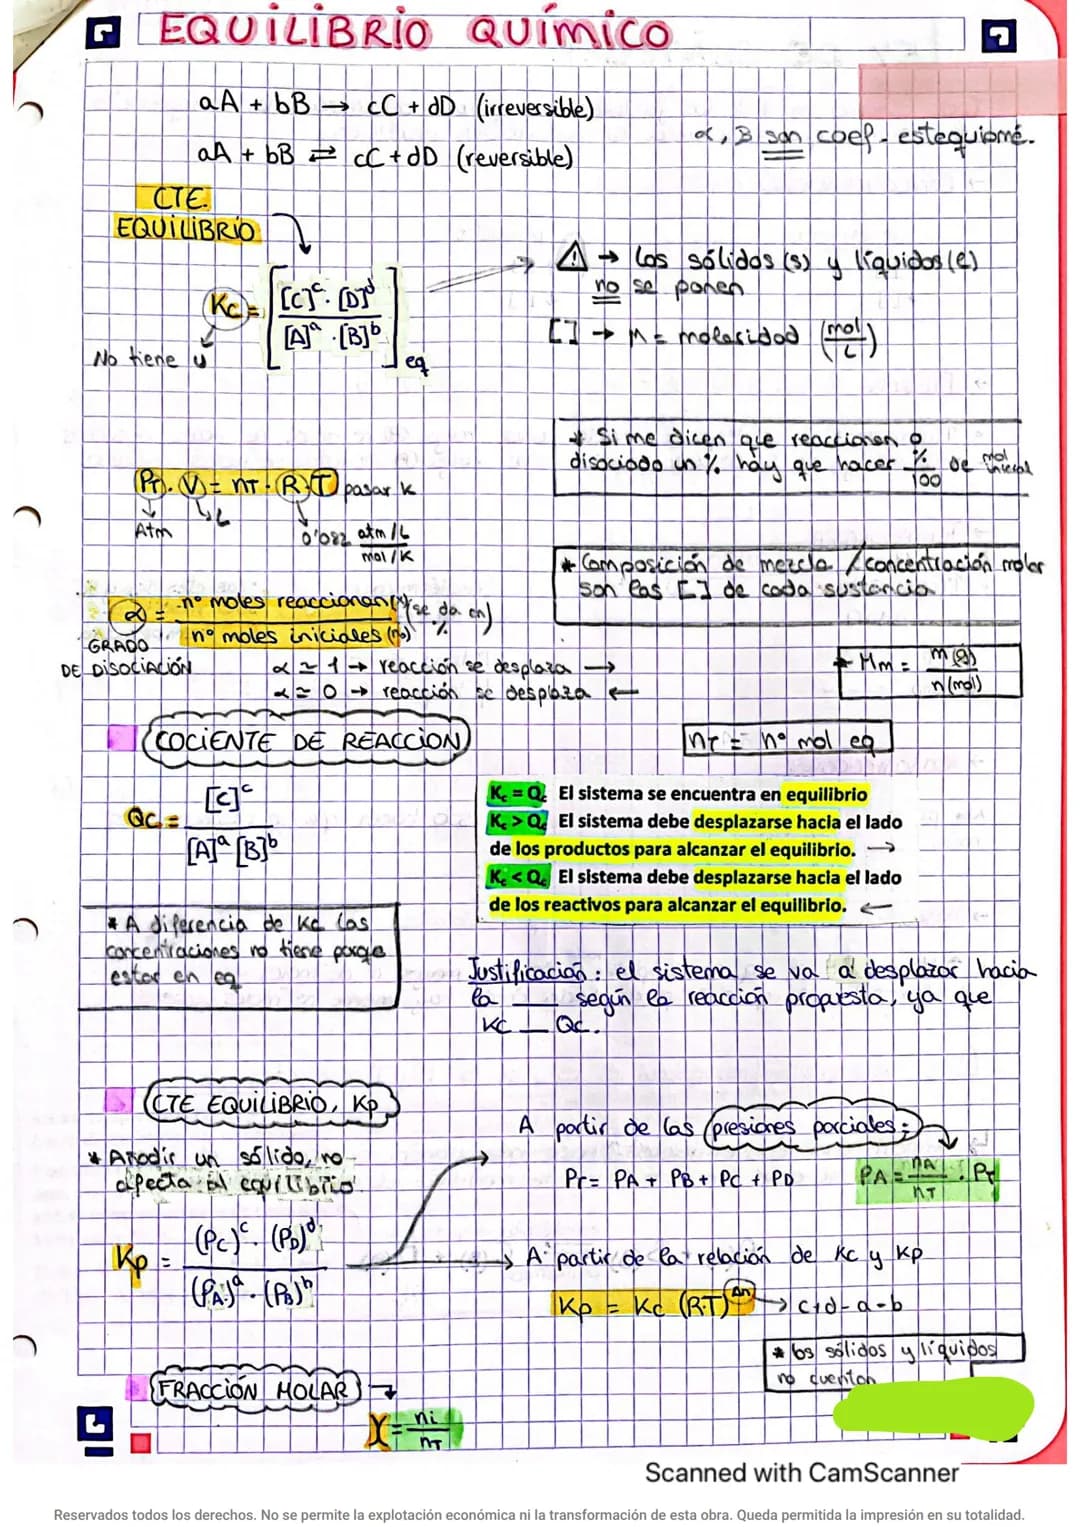 EQUILIBRIO QUÍMICO
aA + bB → cC + dD (irreversible)
α, B son coef. estequiomé.
aA + bB ⇄ cC + dD (reversible)
CTE.
EQUILIBRIO
Kc = [[C]^c · [D]^d / [A]^a · [B]^b] eq
No tiene u
⚠ → Los sólidos (s) y líquidos (l)
no se ponen
[ ] → M = molaridad (mol/L)
* Si me dicen que reaccionan o
disociado un % hay que hacer %/100 de mol inicial
PT · V = nT · R · T pasar K
Atm
L
0'082 atm/L
mol/K
* Composición de mezcla / concentración molar
son las [ ] de cada sustancia
α = nº moles reaccionan (x) / nº moles iniciales (n0) (se da en %)
GRADO
DE DISOCIACIÓN
α ≃ 1 → reacción se desplaza →
α ≃ 0 → reacción se desplaza ←
* Mm = m(g) / n(mol)
COCIENTE DE REACCION
nT = nº mol eq
Qc = [C]^c / [A]^a [B]^b
Kc = Qc El sistema se encuentra en equilibrio
Kc > Qc El sistema debe desplazarse hacia el lado
de los productos para alcanzar el equilibrio. →
Kc < Qc El sistema debe desplazarse hacia el lado
de los reactivos para alcanzar el equilibrio. ←
* A diferencia de Kc las
concentraciones no tiene porqe
estar en eq
Justificación: el sistema se va a desplazar hacia
la ___ según la reacción propuesta, ya que
Kc __ Qc.
CTE EQUILIBRIO, Kp
* Añadir un sólido, no
afecta al equilibrio
A partir de las presiones parciales:
PT = PA + PB + PC + PD
PA = nA / nT · PT
Kp = (PC)^c · (PD)^d / (PA)^a · (PB)^b
A partir de la relación de Kc y Kp
Kp = Kc (R·T)^Δn → c+d-a-b
* los sólidos y líquidos
no cuentan
FRACCIÓN MOLAR
X = ni / nT
Scanned with CamScanner
Reservados todos los derechos. No se permite la explotación económica ni la transformación de esta obra. Queda permitida la impresión en su totalidad.